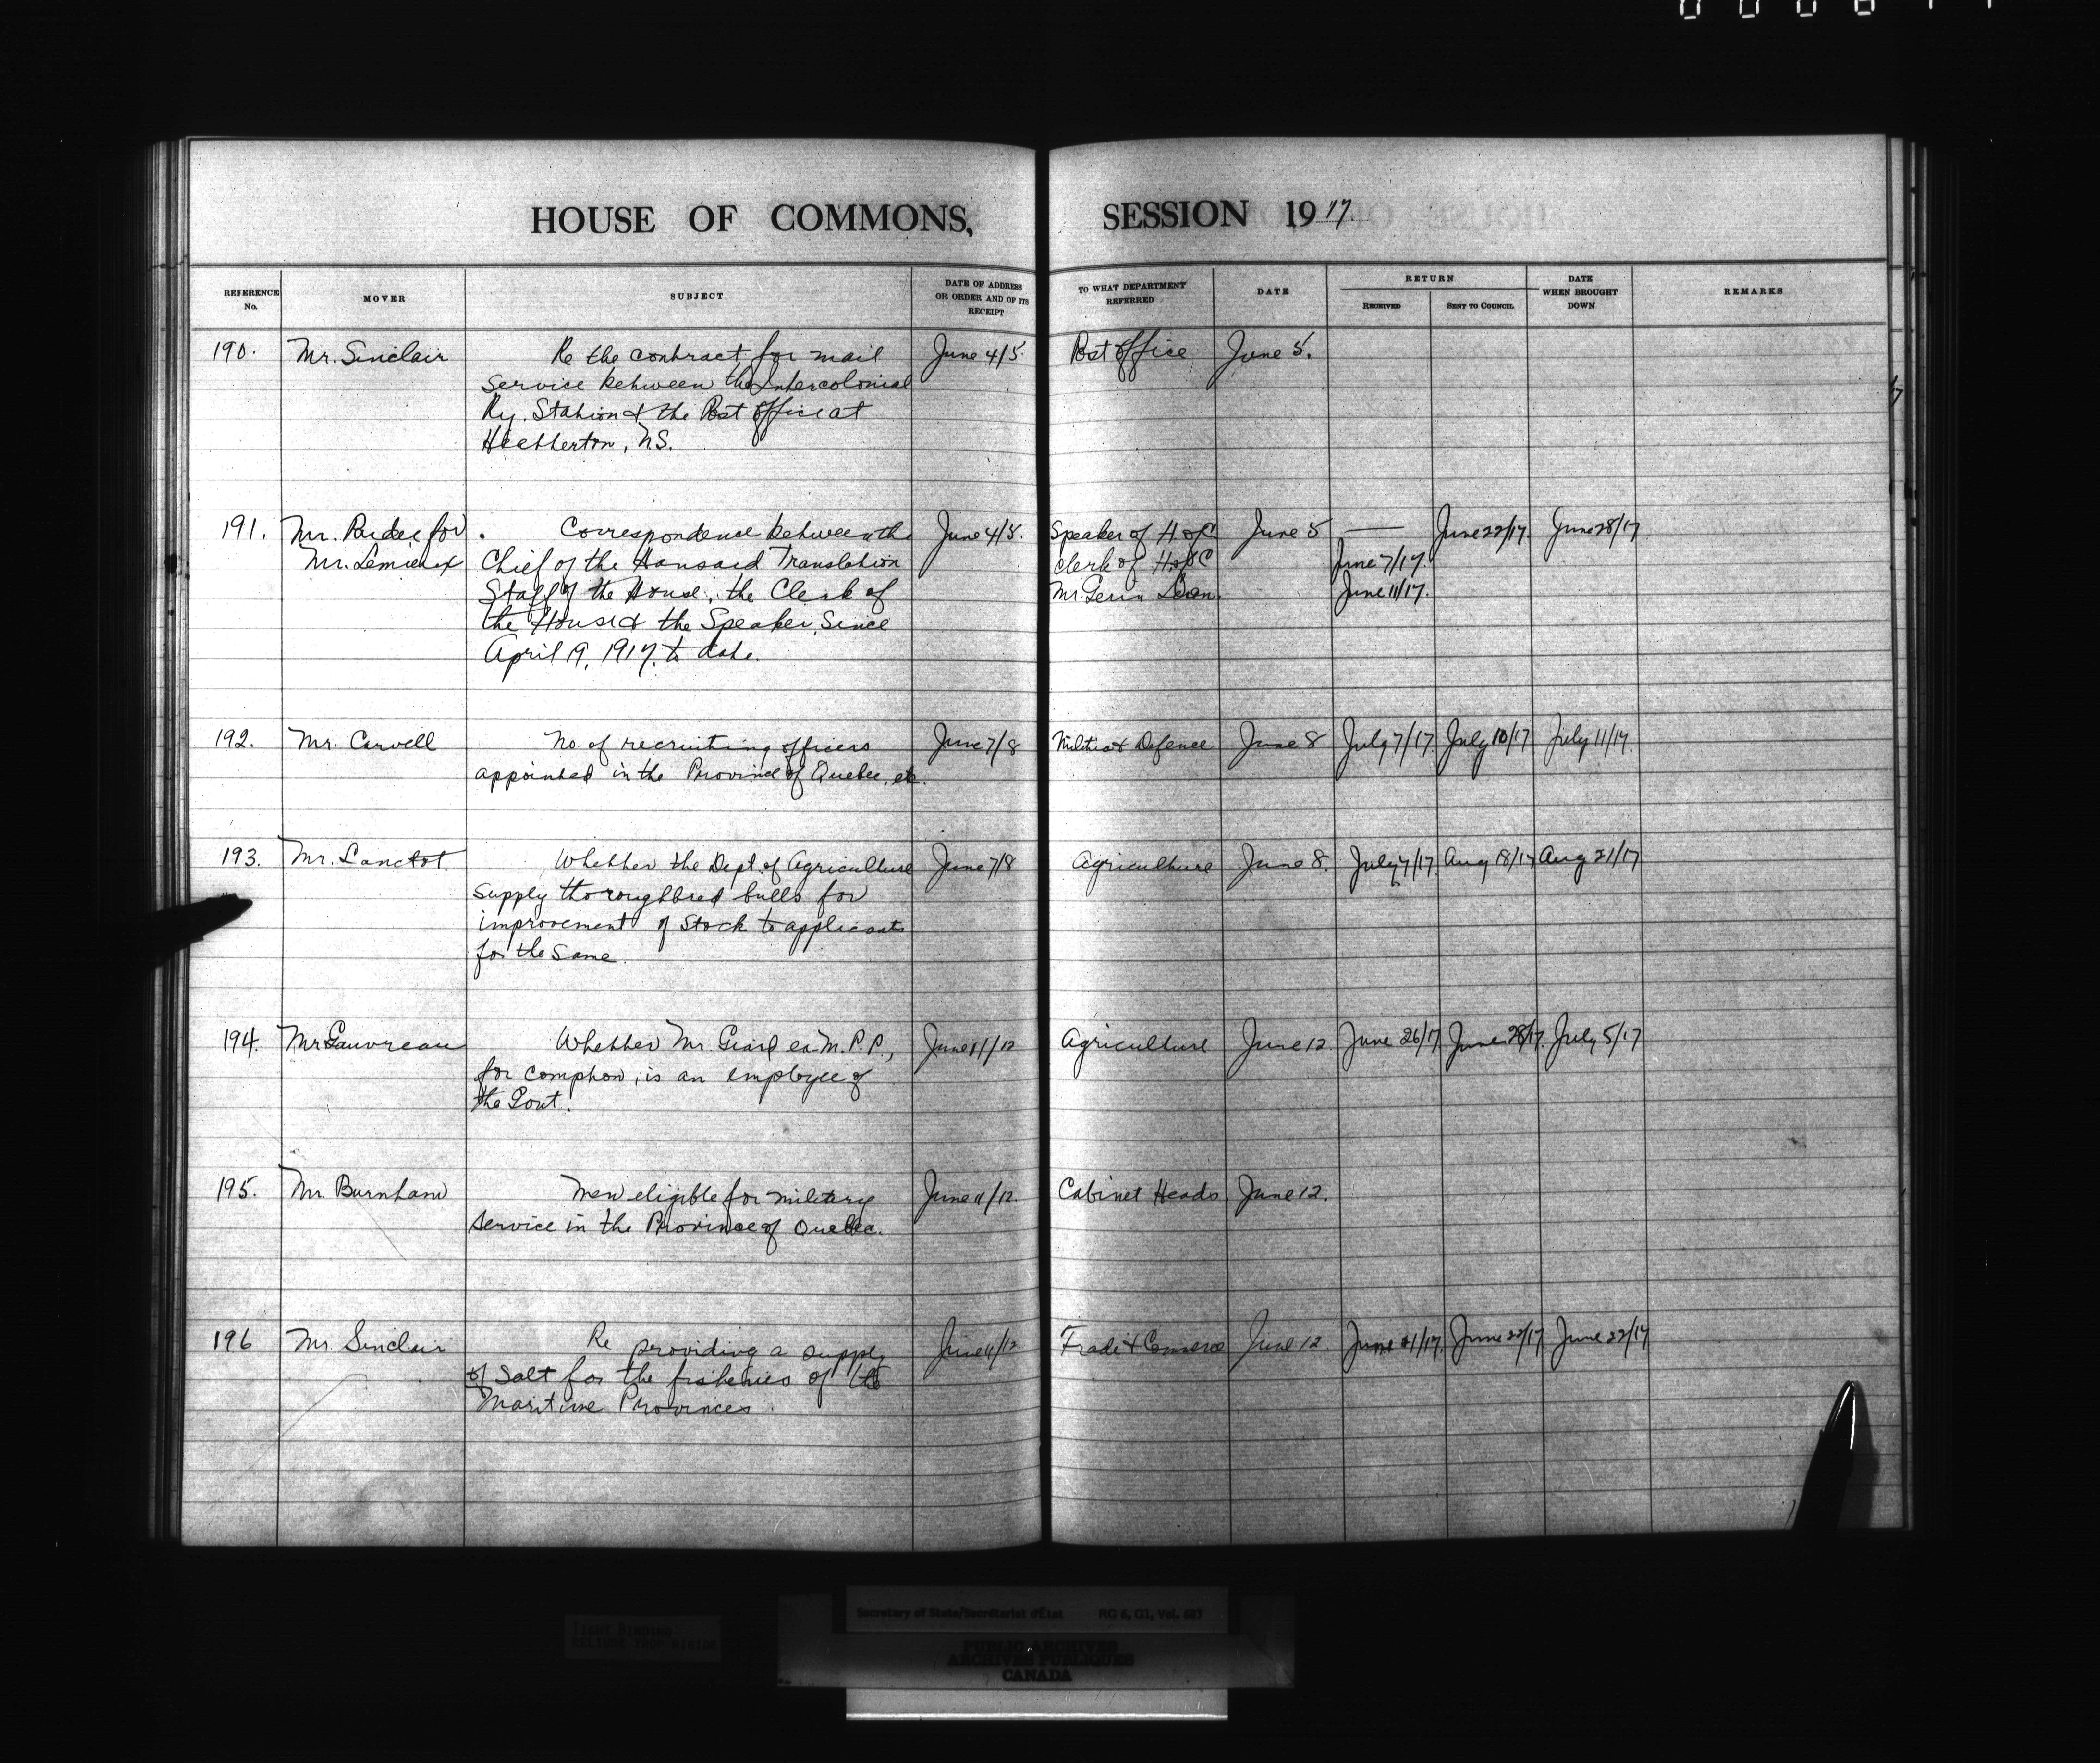 HOUSE OF COMMONS, SESSION 1917.
REFERENCE No. MOVER SUBJECT DATE OF ADDRESS OR ORDER AND OF ITS RECEIPT TO WHAT DEPARTMENT REFERRED DATE RETURN RECEIVED SENT TO COUNCIL DATE WHEN BROUGHT DOWN REMARKS
190. Mr. Sinclair Re the contract for mail June 4/5. Post Office June 5.
service between the Intercolonial
Ry. Station & the Post Office at
Heatherton, N.S.
191. Mr. for Correspondence between the June 4/5. Speaker of H. of C June 5 — June 22/17. June 28/17
Mr. Lemieux Chief of the Hansard Translation Clerk of H of C June 7/17.
Staff of the House, the Clerk of Mr. June 11/17.
the House & the Speaker, since
April 19, 1917. to date.
192. Mr. Carvell No. of recruiting officers June 7/8 Militia & Defence June 8 July 7/17 July 10/17 July 11/17.
appointed in the Province of Quebec, etc.
193. Mr. Lanctot. Whether the Dept. of Agriculture June 7/8 Agriculture June 8. July 7/17. Aug 18/17 Aug 21/17
supply thoroughbred bulls for
improvement of Stock to applicants
for the same.
194. Mr Gauvreau Whether Mr. Giard ex M.P.P., June 11/12 Agriculture June 12 June 26/17 June 28/17. July 5/17
for Compton, is an employee of
the Govt.
195. Mr. Burnham Men eligible for military June 11/12. Cabinet Heads June 12.
service in the Province of Quebec.
196 Mr. Sinclair Re providing a supply June 11/12 Trade & Commerce June 12 June 21/17. June 22/17 June 22/17
of Salt for the fisheries of the
Maritime Provinces.
Secretary of State/Secrétariat d'État RG 6, G1, Vol. 683
TIGHT BINDING
RELIURE TROP RIGIDE
PUBLIC ARCHIVES
ARCHIVES PUBLIQUES
CANADA